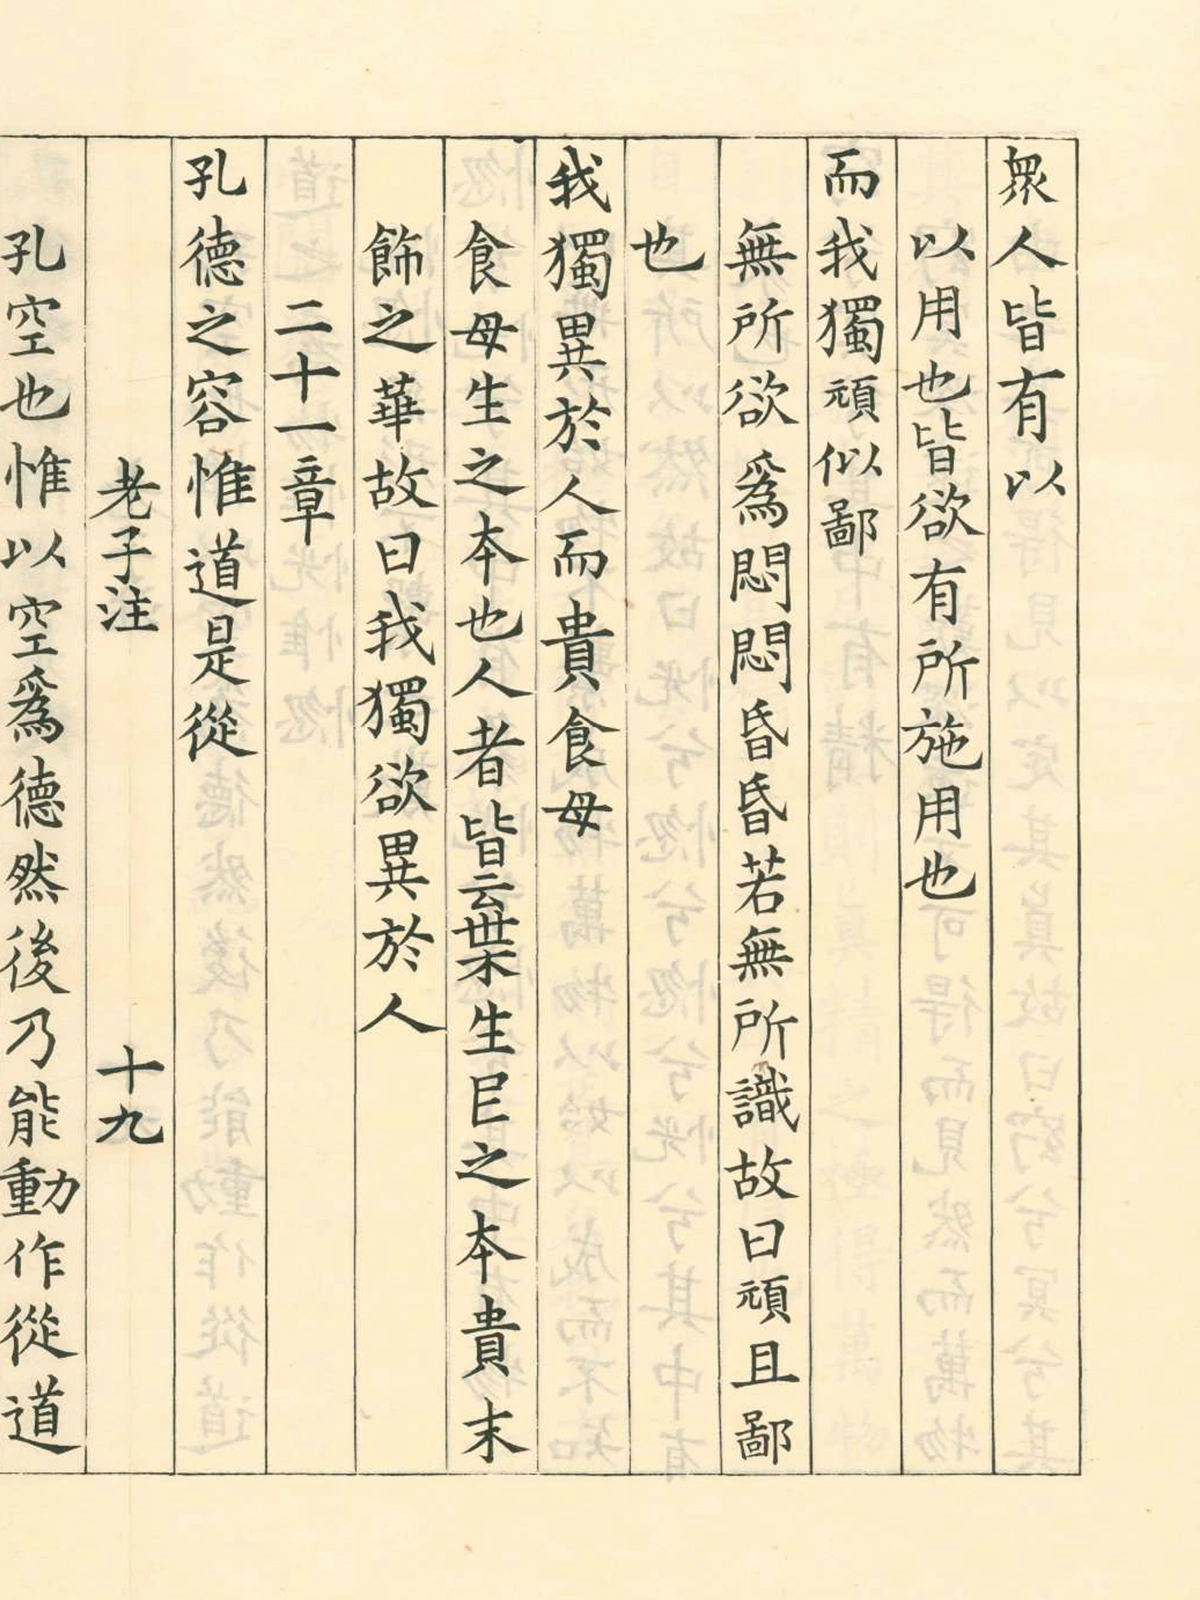 衆人皆有以
以用也皆欲有所施用也
而我獨頑似鄙
無所欲爲悶悶昏昏若無所識故曰頑且鄙
也
我獨異於人而貴食母
食母生之本也人者皆云棄生民之本貴末
飾之華故曰我獨欲異於人
二十一章
孔德之容惟道是從
老子注 十九
孔空也惟以空爲德然後乃能動作從道